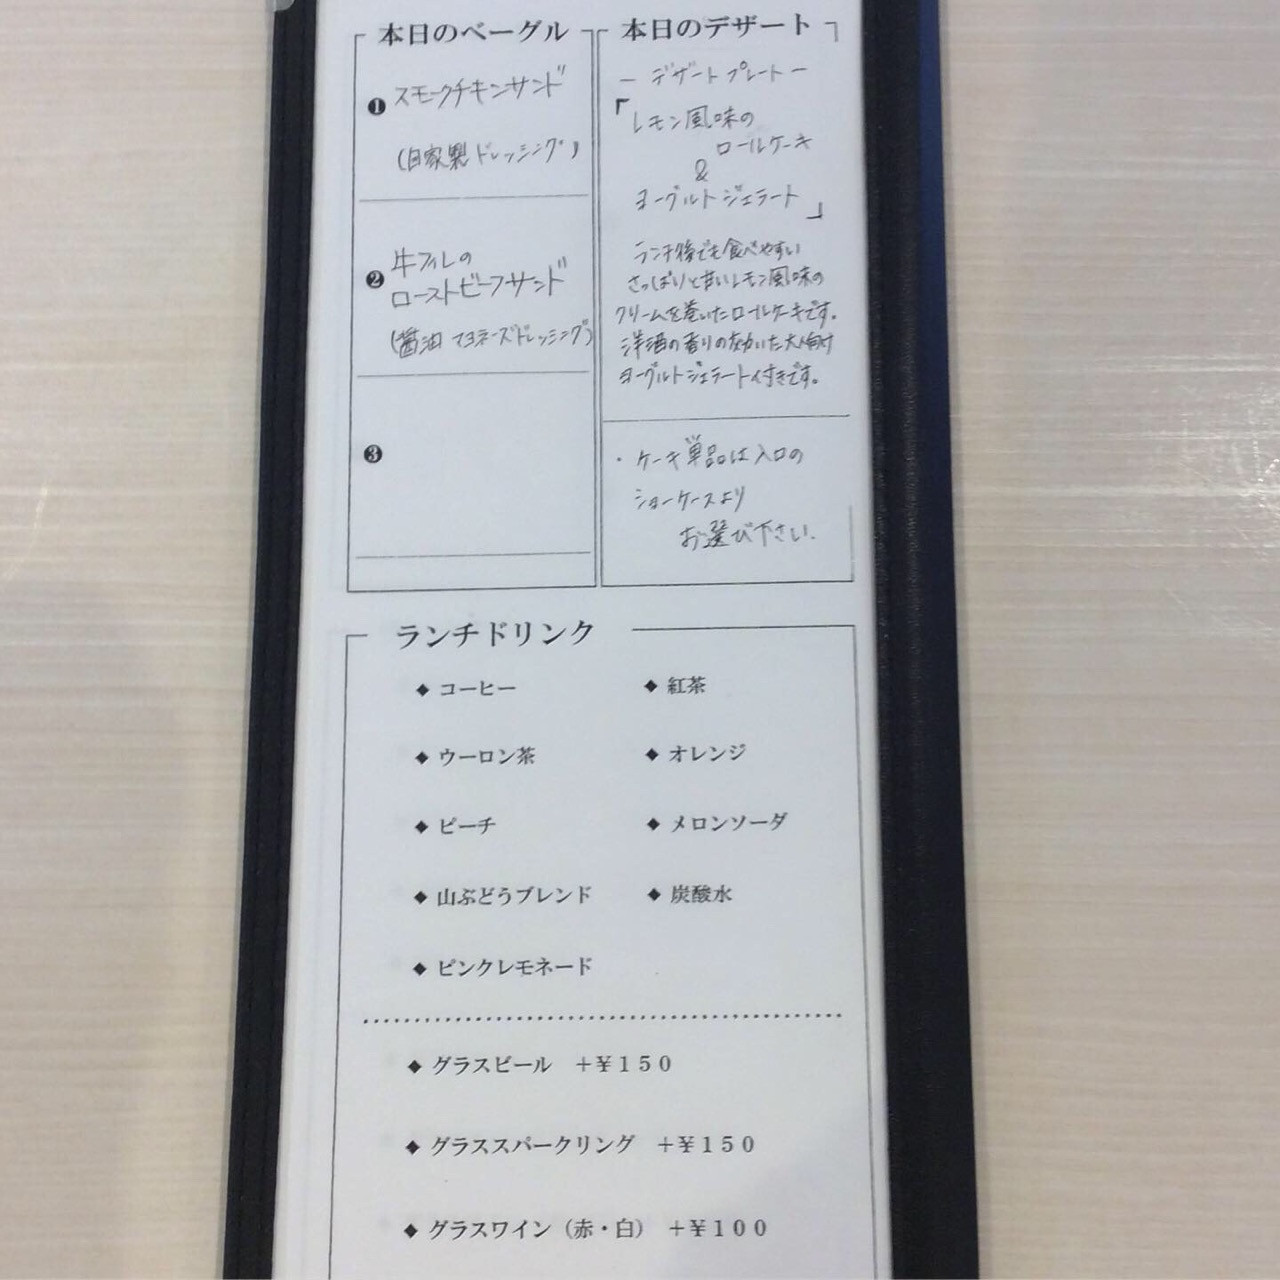 本日のベーグル
❶ スモークチキンサンド
(自家製ドレッシング)
❷ 牛フィレの
ローストビーフサンド
(醤油マヨネーズドレッシング)
❸
本日のデザート
ー デザートプレート ー
「レモン風味の
ロールケーキ
&
ヨーグルトジェラート」
ランチ後でも食べやすい
さっぱりと甘いレモン風味の
クリームを巻いたロールケーキです。
洋酒の香りの効いた大人向け
ヨーグルトジェラート付きです。
・ケーキ単品は入口の
ショーケースより
お選び下さい.
ランチドリンク
◆ コーヒー
◆ 紅茶
◆ ウーロン茶
◆ オレンジ
◆ ピーチ
◆ メロンソーダ
◆ 山ぶどうブレンド
◆ 炭酸水
◆ ピンクレモネード
◆ グラスビール ＋￥１５０
◆ グラススパークリング ＋￥１５０
◆ グラスワイン（赤・白） ＋￥１００